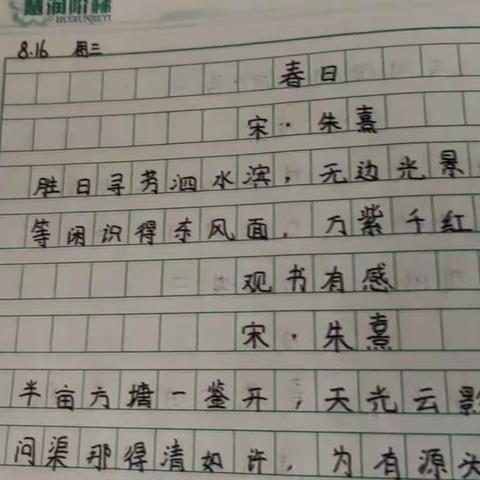 惠润阶梯
HUIRUNJIETI
8.16 周三
春日
宋·朱熹
胜日寻芳泗水滨，无边光景
等闲识得东风面，万紫千红
观书有感
宋·朱熹
半亩方塘一鉴开，天光云影
问渠那得清如许，为有源头